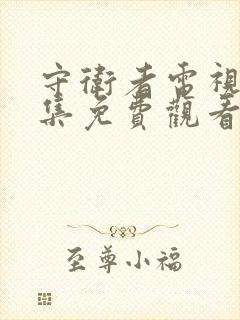 守衛者電視
集免費觀看
至尊小福